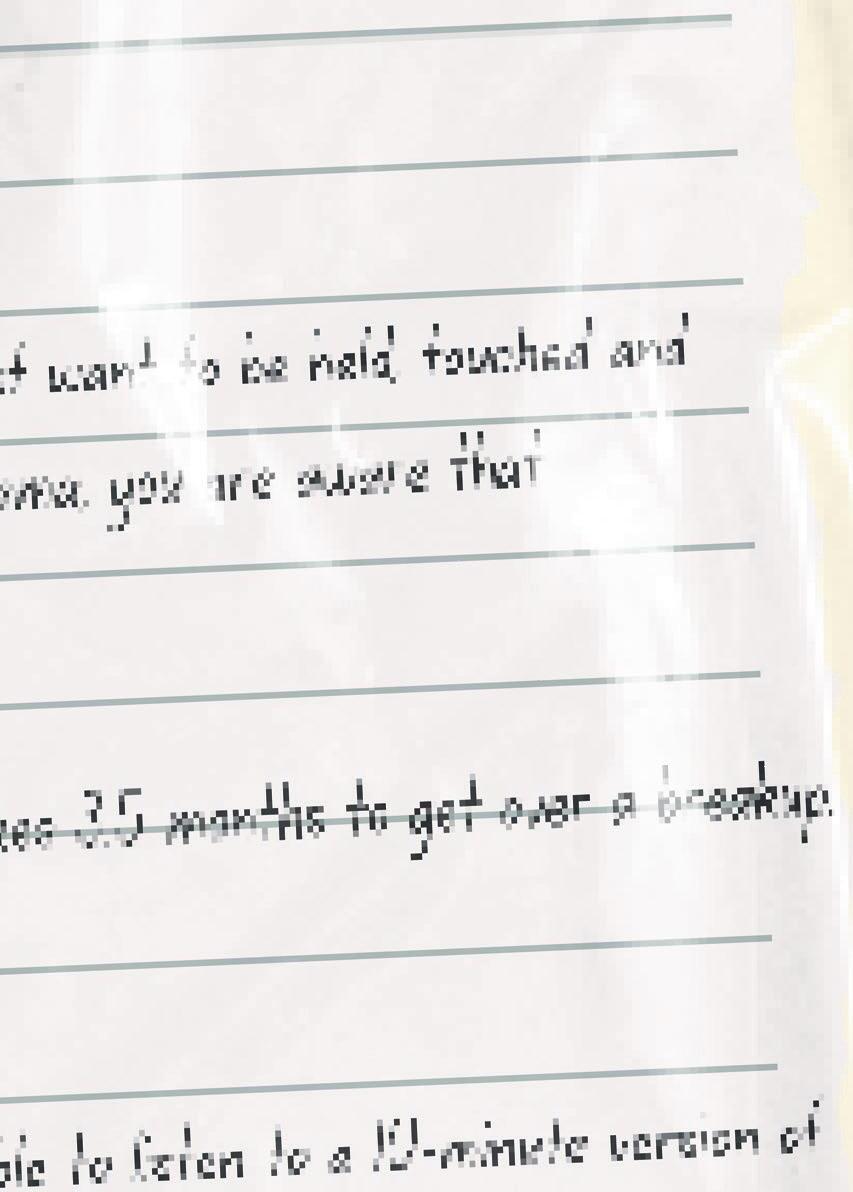 want to be held, touched and
you are aware that
3.5 months to get over a breakup.
to listen to a 10-minute version of